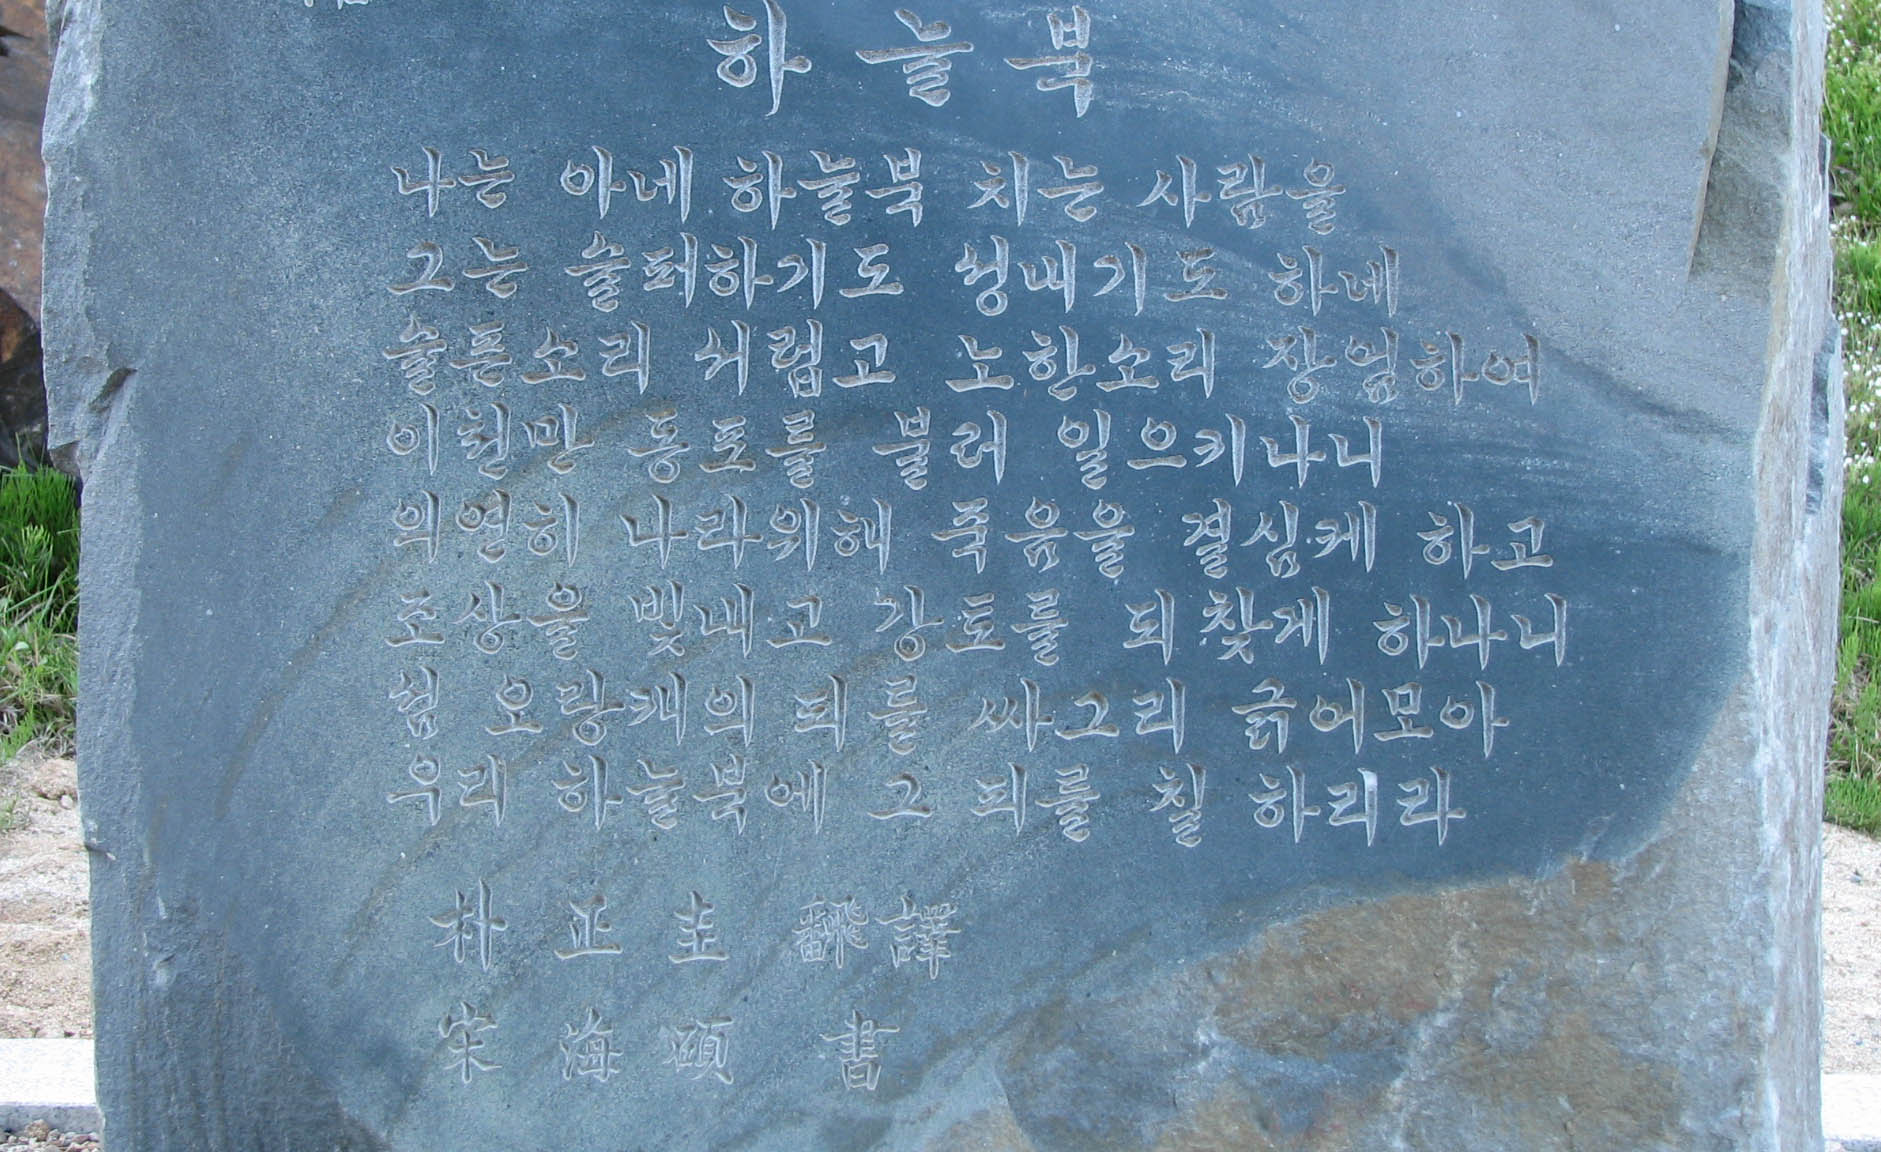 하늘북
나는 아네 하늘북 치는 사람을
그는 슬퍼하기도 성내기도 하네
슬픈소리 서럽고 노한소리 장엄하여
이천만 동포를 불러 일으키나니
의연히 나라위해 죽음을 결심케 하고
조상을 빛내고 강토를 되찾게 하나니
섬 오랑캐의 피를 싸그리 긁어모아
우리 하늘북에 그 피를 칠 하리라
朴正圭 飜譯
宋海碩 書